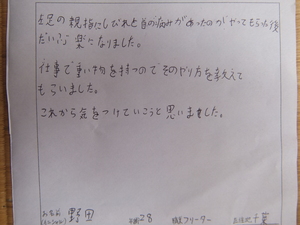 左足の親指にしびれと首の痛みがあったのがやってもらった後
だいぶ楽になりました。
仕事で重い物を持つのでそのやり方を教えて
もらいました。
これから気をつけていこうと思いました。
お名前
(イニシャル) 野田 年齢 28 職業 フリーター お住まい 千葉